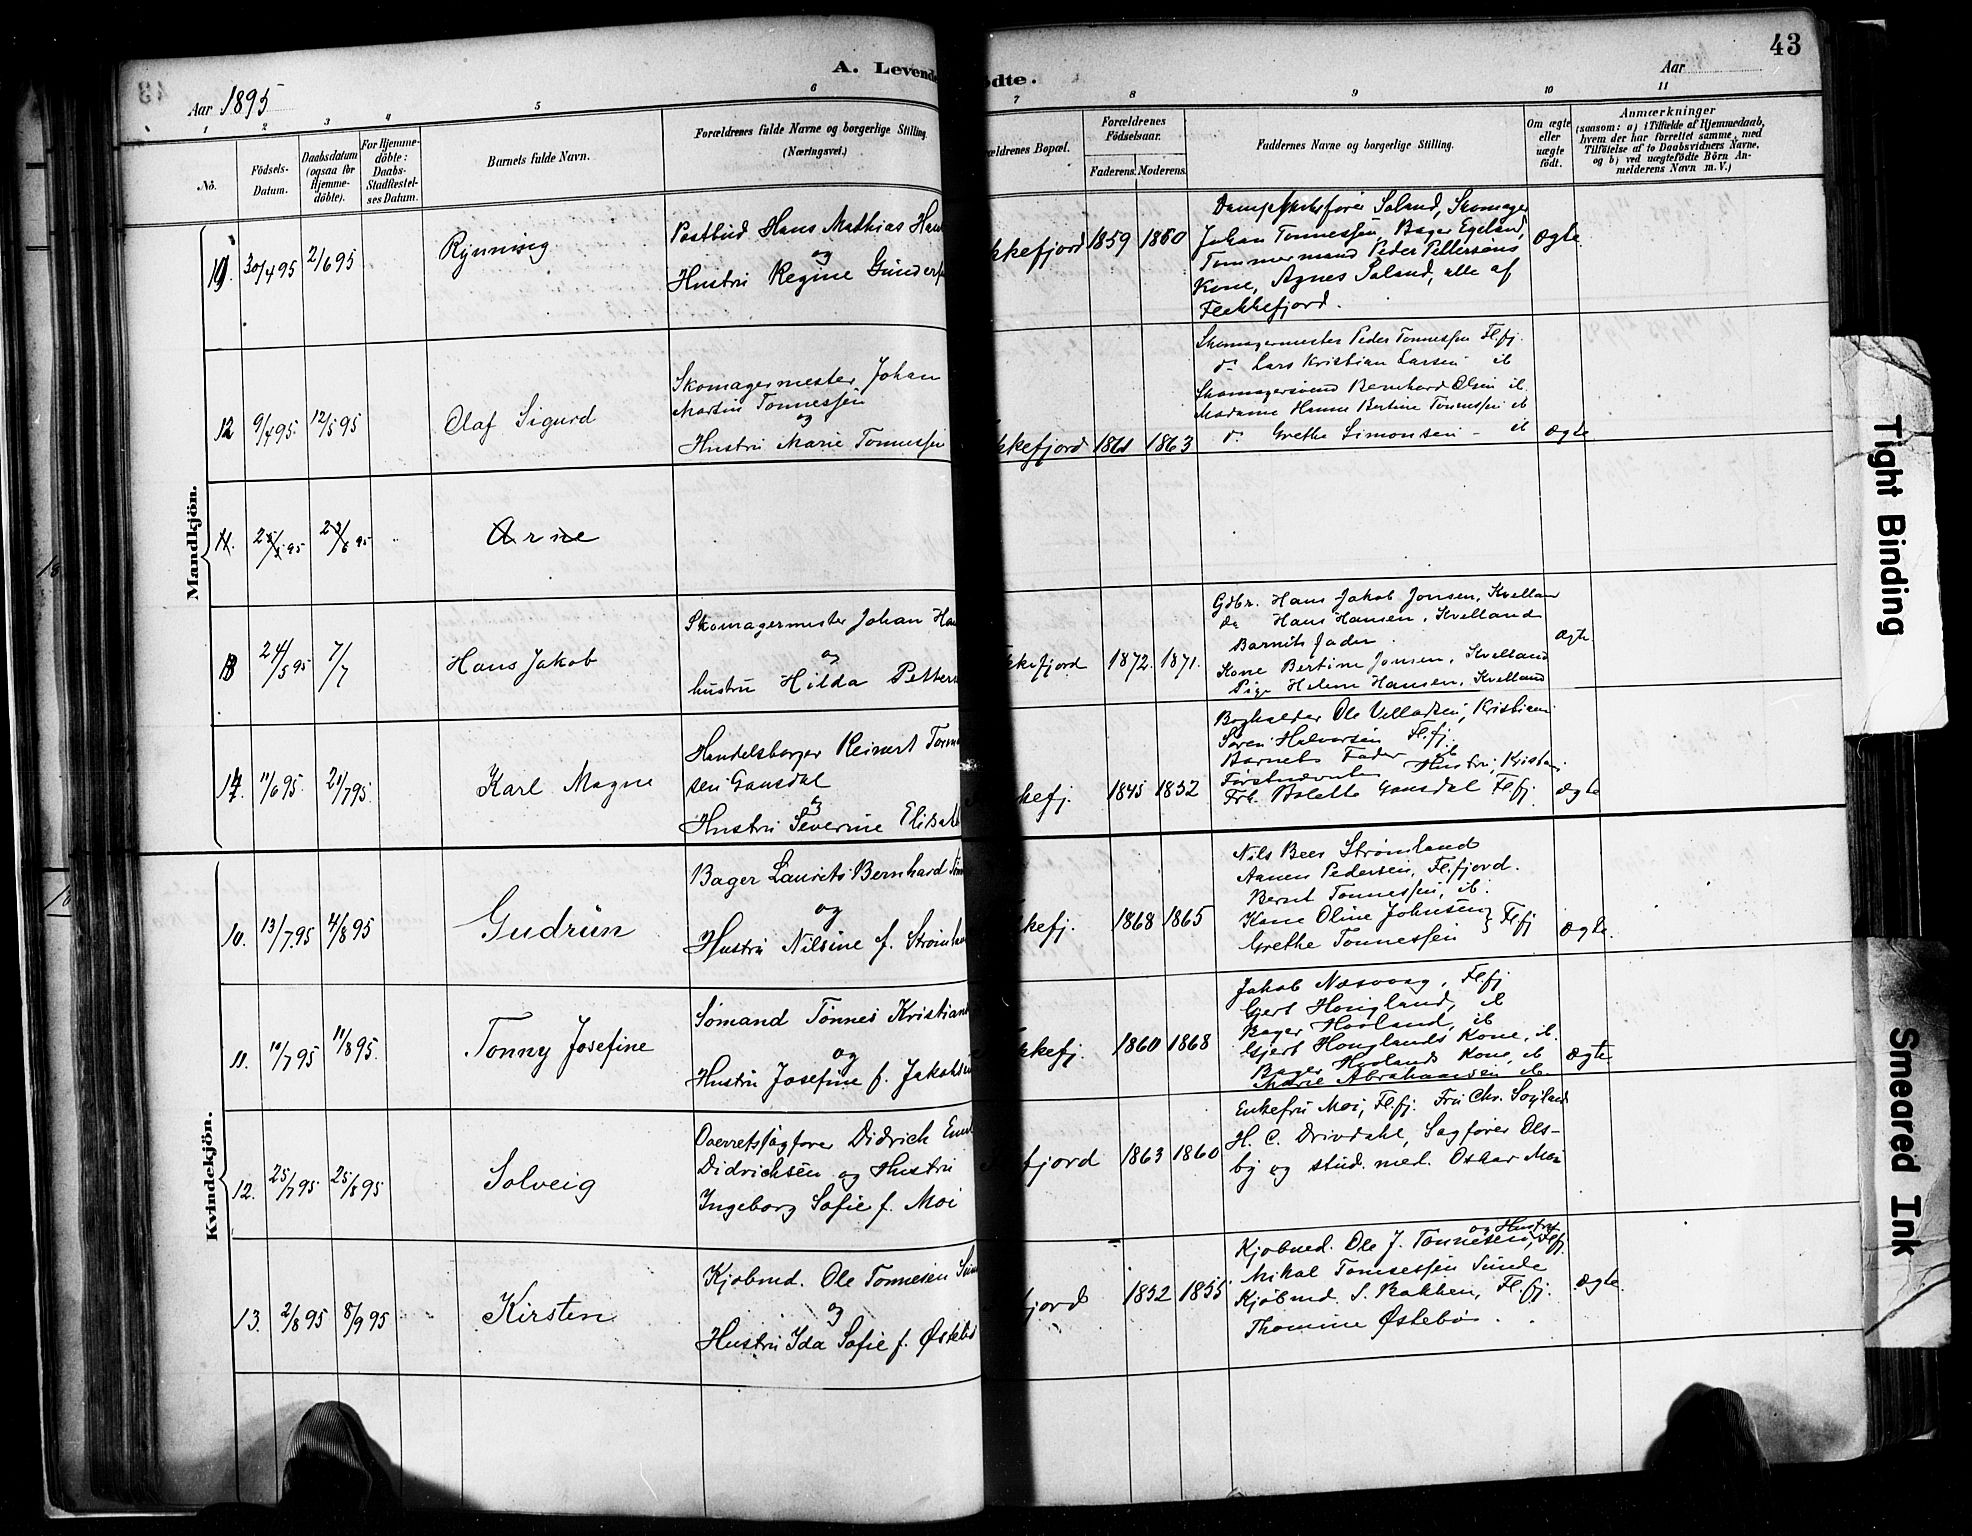 43
A. Levende
ødte.
Aar 1895
Aar
1 2 3 4 5 6 7 8 9 10 11
No.
Födsels-
Datum.
Daabsdatum
(ogsaa for
Hjemme-
döbte).
For Hjemme-
döbte:
Daabs-
Stadfæstel-
ses Datum.
Barnets fulde Navn.
Forældrenes fulde Navne og borgerlige Stilling.
(Næringsvei.)
ældrenes Bopæl.
Forældrenes
Födselsaar.
Faderens. Moderens.
Faddernes Navne og borgerlige Stilling.
Om ægte
eller
uægte
födt.
Anmærkninger
(saasom: a) i Tilfælde af Hjemmedaab,
hvem der har forrettet samme, med
Tilföielse af to Daabsvidners Navne,
og b) ved uægtefödte Börn An-
melderens Navn m. V.)
Mandkjön.
30/4 95 2/6 95
Postbud Hans Mathias Han
og
Hustru Regine Gunders
kkefjord 1859 1860
Saland, Skomager
Johan Tonnessen, Bager Egeland,
Tommermand Peder Pettersens
Kone, Agnes Saland, alle af
Flekkefjord.
Ægte
12 9/4 95. 12/5 95
Olaf Sigurd
Skomagermester Johan
Martin Tonnessen
og
Hustru Marie Tonnessen
kkefjord 1861 1863
Skomagermester Peder Tonnessen Fl.fj.
do Lars Kristian Larsen ib
Skomagersvend Bernhard Olsen ib.
Madame Hanne Bertine Tonnessen ib
do Grethe Simonsen - ib
Ægte
11. 25/5 95 23/6 95
Arne
13 24/5 95 7/7
Hans Jakob
Skomagermester Johan Han
og
hustru Hilda Petters
kkefjord 1872. 1871.
Gdbr. Hans Jakob Jonsen, Kvelland
do Hans Hansen, Kvelland
Barnets fader.
Kone Bertine Jonsen, Kvelland
Pige Helene Hansen, Kvelland
Ægte
14. 11/6 95. 21/7 95.
Karl Magne
Handelsborger Reinert Tonn
sen Gausdal
og
Hustru Severine Elisab
kefj. 1845 1852
Bogholder Ole Velladsen, Kristian
Søren Halvorsen Fl.fj.
Barnets Fader ib
Førstnævntes Hustru, Kristian
Frk. Bolette Gausdal Fl.fj.
Ægte
Kvindekjön.
10. 13/7 95 4/8 95
Gudrun
Bager Laurets Bernhard
og
Hustru Nilsine f. Strømlan
kefj. 1868 1865
Nils Beer Strømland
Aanen Pedersen, Fl.fjord.
Bernt Tonnessen, ib.
Kone Oline Johnsen
Grethe Tonnessen } Fl.fj
Ægte.
11. 10/7 95 11/8 95.
Tonny Josefine
Sømand Tønnes Kristian
og
Hustru Josefine f. Jakobsen
kkefj. 1860 1868
Jakob Næsvaag, Fl.fj
Gjert Houghland, ib
Bager Hovland, ib
Gjert Houglands Kone, ib.
Bager Hovlands Kone, ib
Marie Abrahamsen ib
Ægte
12. 25/7 95 25/8 95
Solveig
Overretssagfører Didrich
Didrichsen og Hustru
Ingeborg Sofie f. Moi
fjord 1863 1860
Enkefru Moi, Fl.fj. Fru Chr. Søyland
H. C. Drivdahl, Sagfører Ols-
by og stud. med. Oskar Moi
13. 2/8 95 8/9 95
Kirsten
Kjøbmd. Ole Tonnesen Sun
og
Hustru Ida Sofie f. Østebø
fjord 1852 1855
og Hustru
Kjøbmd. Ole J. Tonnesen, Fl.fj.
Mikal Tonnessen Sunde
Kjøbmd. S. Bakken, Fl.fj.
Thomine Østebø.
Ægte
Tight Binding
Smeared Ink